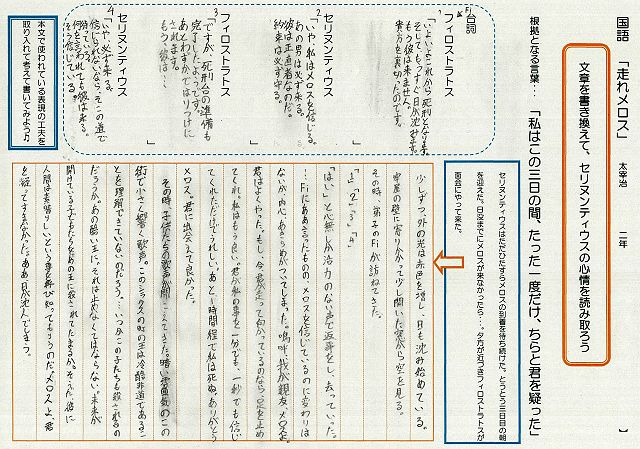 国語 「走れメロス」 太宰治 二年 】
文章を書き換えて、セリヌンティウスの心情を読み取ろう
根拠となる言葉… 「私はこの三日の間、たった一度だけ、ちらと君を疑った」
セリヌンティウスはただひたすらメロスの到着を待ち続けた。とうとう三日目の朝
を迎えた。日没までにメロスが来なかったら…。夕方が近づきフィロストラトスが
面会にやって来た。
台詞
フィロストラトス
「いよいよこれから死刑となります。
そして、もうすぐ日が沈みます。
もう彼は来ません。
貴方を裏切ったのです。」
2 セリヌンティウス
「いや、私はメロスを信じる。
あの男は必ず来る。
彼は正直者なのだ。
約束は必ず守る。」
3 フィロストラトス
「ですが、死刑台の準備も
完了したようです。
あとわずかではりつけに
されます。
もう、彼は…」
4 セリヌンティウス
「いや、必ず来る。
信じられないなら、そこの道で
待っている。
何を言われても彼は来る。
そう信じている。」
本文で使われている表現の工夫を
取り入れて考えて書いてみよう♪
少しずつ、外の光は赤色を増し、日も沈み始めている。
牢屋の壁に寄りかかって少し開いた窓から空を見る。
その時、弟子のFiが訪ねてきた。
「1」「2」「3」「4」
「はい」と心無しか活力のない声で返事をし、去っていった。
…Fiにああ言ったものの、メロスを信じているのに変わりは
ないが、内心、あきらめがついてしまった。嗚呼、我が親友、メロスよ。
君はよくやった。もし、今、君が走って向かっているのなら、足を止め
てくれ。私はもう良い。君が私の事を一分でも、一秒でも信じ
てくれただけでうれしい。あと一時間程で私は死ぬ。ありがとう
メロス。君に出会えて良かった。
その時、子供たちの歌声が聞こえてきた。暗い雰囲気のこの
街で小さく響く歌声。このシラクスの町の王は冷酷非道であるこ
とを理解できていないのだろう。…いつかこの子たちも殺されるの
だろうか。あの酷い王に。それは止めなくてはならない。未来が
開けている子どもたちをあの王に殺されてたまるか。そうだ、彼に
人間は素晴しいという事を再び知ってもらうのだ。メロスよ、君
を疑ってすまなかった。ああ、日が沈んでしまう。